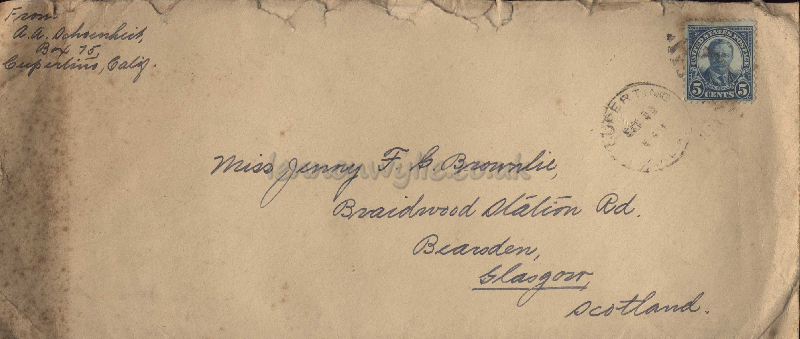 From
A. A. Schoenheit,
Box 75,
Cupertino, Calif.
UNITED STATES POSTAGE
5 CENTS 5
CUPERTINO
Miss Jenny F. G. Brownlie,
Braidwood Station Rd.
Bearsden,
Glasgow,
Scotland.